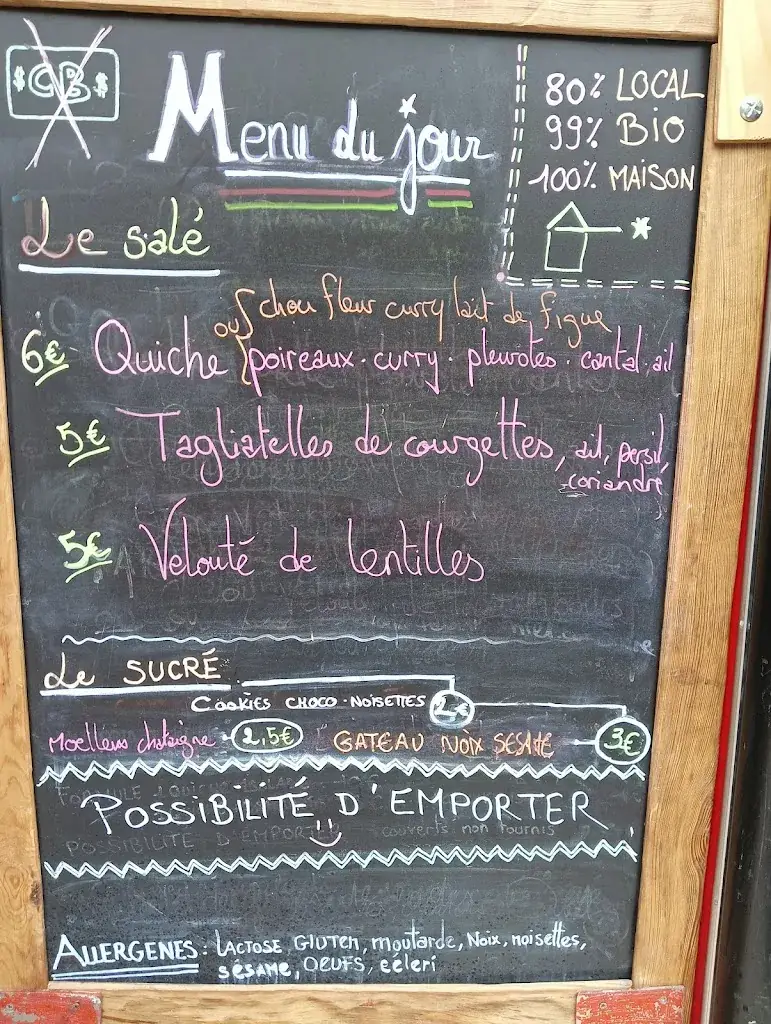 $ CB $
Menu du jour
80% LOCAL
99% BIO
100% MAISON
Le salé
ou chou fleur curry lait de figue
6€ Quiche poireaux · curry · pleurotes · cantal · ail
5€ Tagliatelles de courgettes, ail, persil,
coriandre
5€ Velouté de lentilles
Le SUCRÉ
COOKIES CHOCO · NOISETTES 2€
Moelleux chataigne 2,5€ GATEAU NOIX SESAME 3€
POSSIBILITÉ D'EMPORTER
POSSIBILITE D'EMPORTER couverts non fournis
ALLERGENES : LACTOSE, GLUTEN, moutarde, Noix, noisettes,
SÉSAME, OEUFS, céleri